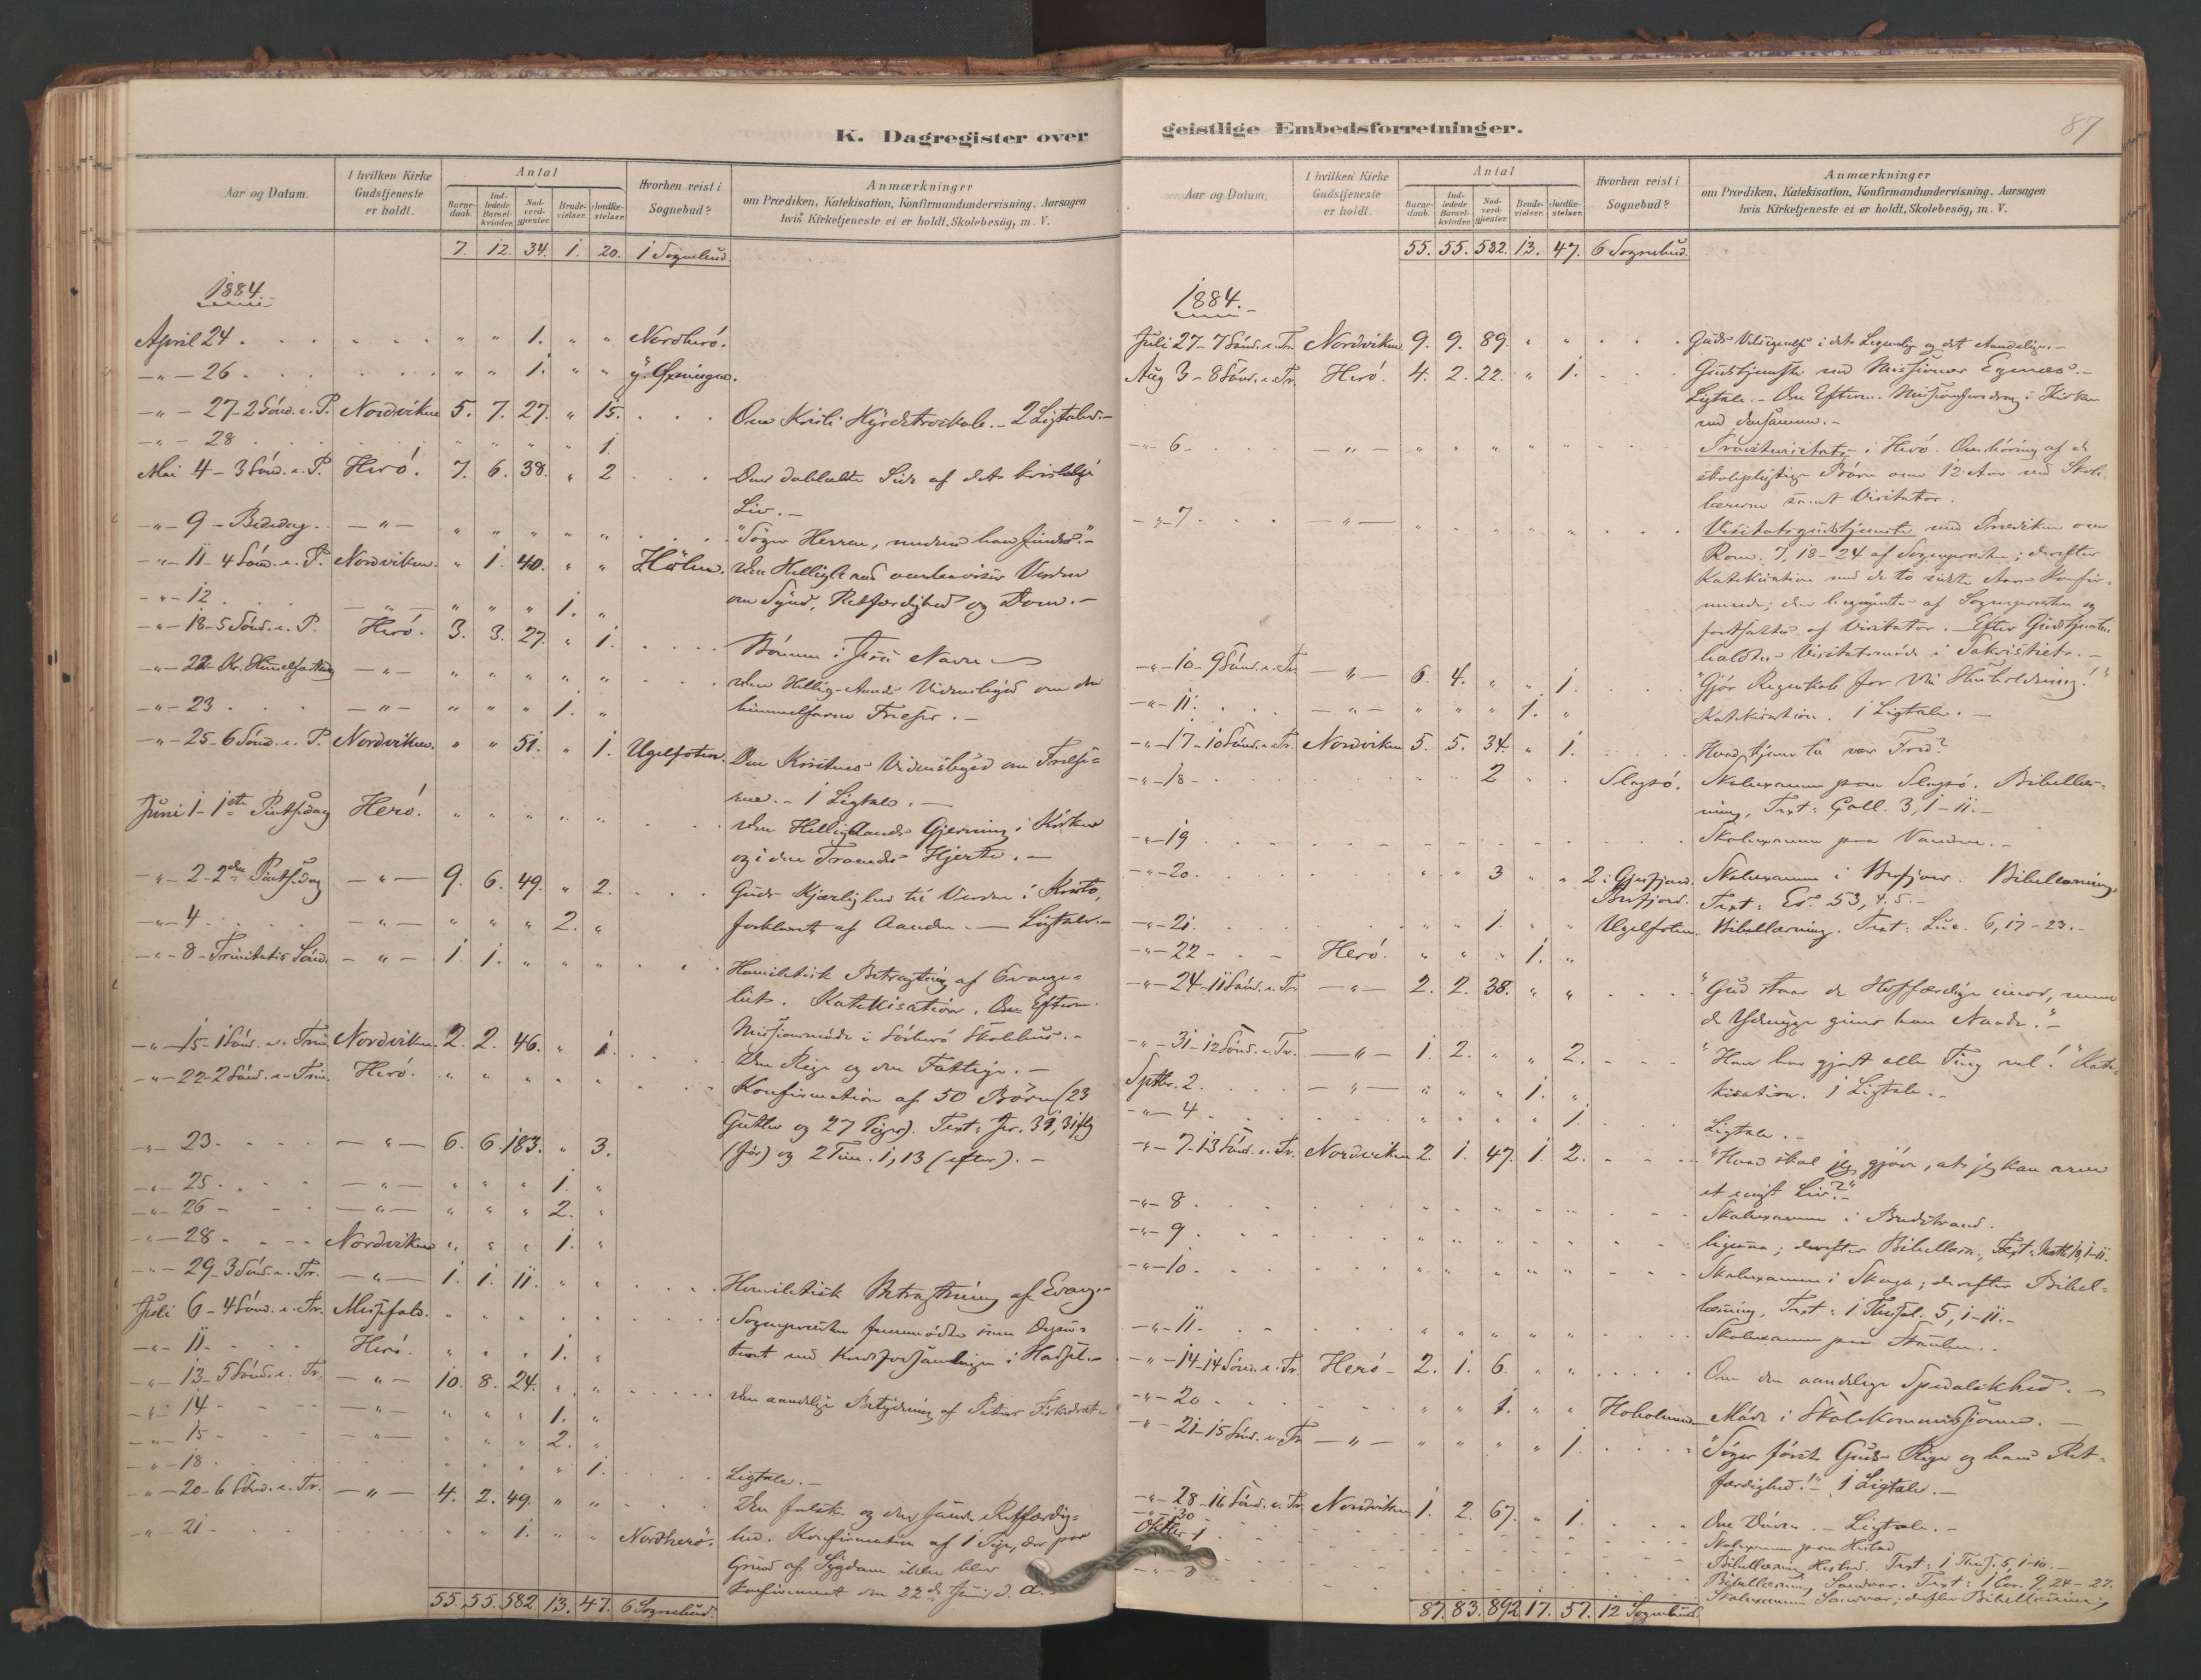 K. Dagregister over
Aar og Datum.
I hvilken Kirke Gudstjeneste er holdt.
Antal
Barne-daab.
Ind-ledede Barsel-kvinder.
Nad-verd-gjæster.
Brude-vielser.
Jordfæ-stelser.
Hvorhen reist i Sognebud?
Anmærkninger
om Prædiken, Katekisation, Konfirmandundervisning, Aarsagen
hvis Kirketjeneste ei er holdt, Skolebesøg, m. V.
7. 12. 34. 1. 20. 1 Sognebud.
1884.
April 24 . " " 1. " " Nordherö.
-"- 26 . " " 1. " "
-"- 27 - 2 Sönd. e. P. Nordviken 5. 7. 27. " 15.
-"- 28 " " " " 1.
Mai 4 - 3 Sönd. e. P. Herö. 7. 6. 38. " 2 Den dobbelte Side af det kristelige
Liv. -
-"- 9 - Bededag. -"- " " " " " "Söger Herren, medens han findes". -
-"- 11 - 4 Sönd. e. P. Nordviken. " 1. 40. " " Holm. Den Helligaand overbeviser Verden
-"- 12 -"- " " " 1. " om Synd, Retfærdighed og Dom. -
-"- 18 - 5 Sönd. e. P. Herö. 3. 3. 27. " 1. Bönnen i Jesu Navn
-"- 22 Kr. Himmelfartsdag -"- " " " " " Den Hellig-Aands Vidnesbyrd om den
-"- 23 -"- " " " 1. " himmelfarne Frelser. -
-"- 25 - 6 Sönd. e. P. Nordviken. " " 51. " 1. Ugelfoten. Den Kristnes Vidnesbyrd om Frelse-
ren. - 1 Ligtale. -
Juni 1 - 1ste Pintsedag Herö. " " " " " Den Helligaands Gjerning i Kirken
og i den Troendes Hjerte. -
-"- 2 - 2den Pintsedag -"- 9. 6. 49. " 2. Guds Kjærlighed til Verden i Kristo,
-"- 4 -"- " " " 2. " forklaret af Aanden. - Ligtale. -
-"- 8 - Trinitatis Sönd. -"- 1. 1. " " " Homiletisk Betragtning af Evange-
liet. Katekisation. Efterm.
Missionsmöde i Sörherö Skolehus. -
-"- 15 - 1 Sönd. e. Trin. Nordviken. 2. 2. 46. " 1. Den Rige og den Fattige. -
-"- 22 - 2 Sönd. e. Trin. Herö. " " " " " Konfirmation af 50 Börn (23
Gutter og 27 Piger). Text: Jer. 31, 31 flg
-"- 23. -"- 6. 6. 183. " 3. (för) og 2 Tim. 1, 13 (efter). -
-"- 25 -"- " " " 1. "
-"- 26 -"- " " " 2. "
-"- 28 Nordviken " " " 1. "
-"- 29 - 3 Sönd. e. Tr. -"- 1. 1. 11. " " Homiletisk Betragtning af Evang. -
Juli 6 - 4 Sönd. e. Tr. Messefald. " " " " " Sognepresten
-"- 11 Herö. " " " 1. "
-"- 13 - 5 Sönd. e. Tr. -"- 10. 8. 24. " " Den aandelige Betydning af Peters Fiskedræt. -
-"- 14 -"- " " " 1. "
-"- 15 -"- " " " 2. "
-"- 18 " " " " 1. Ligtale. -
-"- 20 - 6 Sönd. e. Tr. -"- 4. 2. 49. " " Den falske og den sande Retfærdig-
-"- 21 " " 1. " " Nordherö. hed. Konfirmation af 1 Pige, der paa
Grund af Sygdom ikke blev
konfirmeret den 22de Juni d. A. -
55. 55. 582. 13. 47. 6 Sognebud.
geistlige Embedsforretninger.
87
Aar og Datum.
I hvilken Kirke Gudstjeneste er holdt.
Antal
Barne-daab.
Ind-ledede Barsel-kvinder.
Nad-verd-gjæster.
Brude-vielser.
Jordfæ-stelser.
Hvorhen reist i Sognebud?
Anmærkninger
om Prædiken, Katekisation, Konfirmandundervisning, Aarsagen
hvis Kirketjeneste ei er holdt, Skolebesøg, m. V.
55. 55. 582. 13. 47. 6 Sognebud.
1884.
Juli 27 - 7 Sönd. e. Tr. Nordviken 9. 9. 89. " " Guds Velsignelse i det Legemlige og det Aandelige. -
Aug 3 - 8 Sönd. e. Tr. Herö. 4. 2. 22. " 1. Gudstjeneste med Missionær Egenæs. -
Ligtale. - Om Efterm. Missionsforedrag i Kirken
ved densamme. -
-"- 6 -"- " " " " " Provstevisitats i Herö. Overhöring af de
skolepligtige Börn over 12 Aar ved Skole-
lærerne samt Visitator.
-"- 7 -"- " " " " " Visitatsgudstjeneste med Prædiken over
Rom. 7, 18-24 af Sognepresten; derefter
Katekisation med de to sidste Aars Konfir-
merede; den begyndtes af Sognepresten og
fortsattes af Visitator. - Efter Gudstjenesten
holdtes Visitatsmöde i Sakristiet. -
-"- 10 - 9 Sönd. e. Tr. -"- 6. 4. " " 1. "Gjör Regnskab for din Husholdning!"
-"- 11. -"- " " " 1. " Katekisation. 1 Ligtale. -
-"- 17 - 10 Sönd. e. Tr. Nordviken 5. 5. 34. " 1. Hvad tjener til vor Fred?
-"- 18 " " 2 " " Slapö. Skolexamen paa Slapö. Bibellæs-
ning, Text: Gall. 3, 1-11. -
-"- 19 Skolexamen paa Vandve. -
-"- 20 " " 3 " " 2: Skolexamen i Bæfjord. Bibellæsning
Text: Es. 53, 4. 5. -
-"- 21 " " 1. " " Ugelfoten. Bibellæsning. Text: Luc. 6, 17-23. -
-"- 22 Herö. " " " 1. "
-"- 24 - 11 Sönd. e. Tr -"- 2. 2. 38. " " "Gud staar de Hoffærdige imod, men
de Ydmyge giver han Naade." -
-"- 31 - 12 Sönd. e. Tr. -"- 1. 2. " " 2. "Han har gjort alle Ting vel!" Kate-
Septbr. 2. -"- " " " 1. " kisation. 1 Ligtale. -
-"- 4 " " " " 1. Ligtale. -
-"- 7 - 13 Sönd. e. Tr. Nordviken 2. 1. 47. 1. 2. "Hvad skal jeg gjöre, at jeg kan arve
et evigt Liv?" -
-"- 8 Skolexamen i Breidstrand.
-"- 9 ligesaa; derefter Bibellæsn., Text: Matth. 13, 1-11.
-"- 10 Skolexamen i Skaga; derefter Bibel-
læsning, Text: 1 Thessal. 5, 1-11. -
-"- 11 " " " " " Skolexamen paa
-"- 14 - 14 Sönd. e. Tr. Herö 2. 1. 6. " " Om den aandelige Spedalskhed. -
-"- 20 " " 1. " " Möde i Skolekommissionen. -
-"- 21 - 15 Sönd. e. Tr -"- " " " " 1. "Söger först Guds Rige og hans Ret-
færdighed!" - 1 Ligtale. -
-"- 28 - 16 Sönd. e. Tr. Nordviken 1. 2. 67. " 1. Om Döden. - Ligtale. -
-"- 30 Skolexamen paa Hestad
Oktbr 1 Bibellæsning, Hestad. Text: 1 Thess. 5, 1-10. -
Bibellæsning, Sandvær. Text: 1 Cor. 9, 24-27.
Skolexamen Sandvær; derefter Bibellæsning,
87. 83. 892. 17. 57. 12 Sognebud.